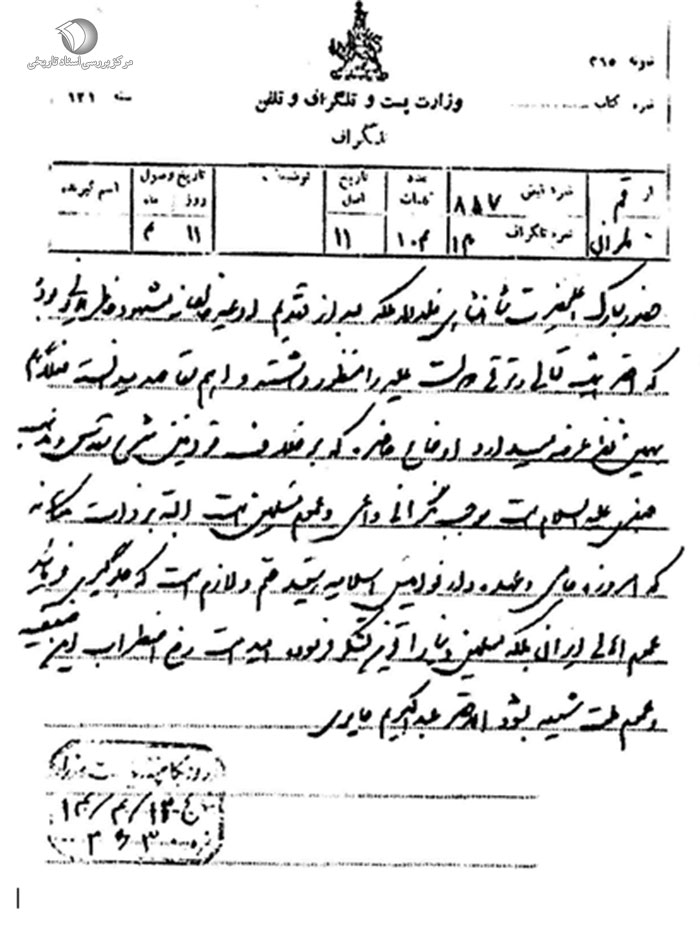 مرکز بررسی اسناد تاریخی
نمونه ۲۶۵
نمره کتاب
وزارت پست و تلگراف و تلفن
سنه ۱۳۱
تلگراف
از قم نمره قبض ۸۸۷ عدد کلمات ۱۰۳ تاریخ اصل ۱۱ توضیحات تاریخ وصول روز ۱۱ ماه ۳ اسم گیرنده
طهران نمره تلگراف ۱۳
حضور مبارک اعلیحضرت شاهنشاهی خلدالله ملکه بعد از تقدیم ادعیه خالصانه مشهود خاطر بوده
که احقر همیشه تعالی و ترقی دولت علیه را منظور داشته و اهم مقاصد میدانسته فعلا هم
بهمین نظر عرضه میدارد اوضاع حاضره که برخلاف قوانین شرع مقدس و مذهب
جعفری علیه السلام است موجب نگرانی داعی و عموم مسلمین است البته بر ذات ملوکانه
که امروزه حامی و عهده دار نوامیس اسلامیه هستید حتم و لازم است که جلوگیری فرمایید
عموم اهالی ایران بلکه مسلمین دنیا را قرین تشکر فرموده امید است رفع اضطراب این ضعیف
و عموم ملت شیعه بشود الاحقر عبدالکریم حایری